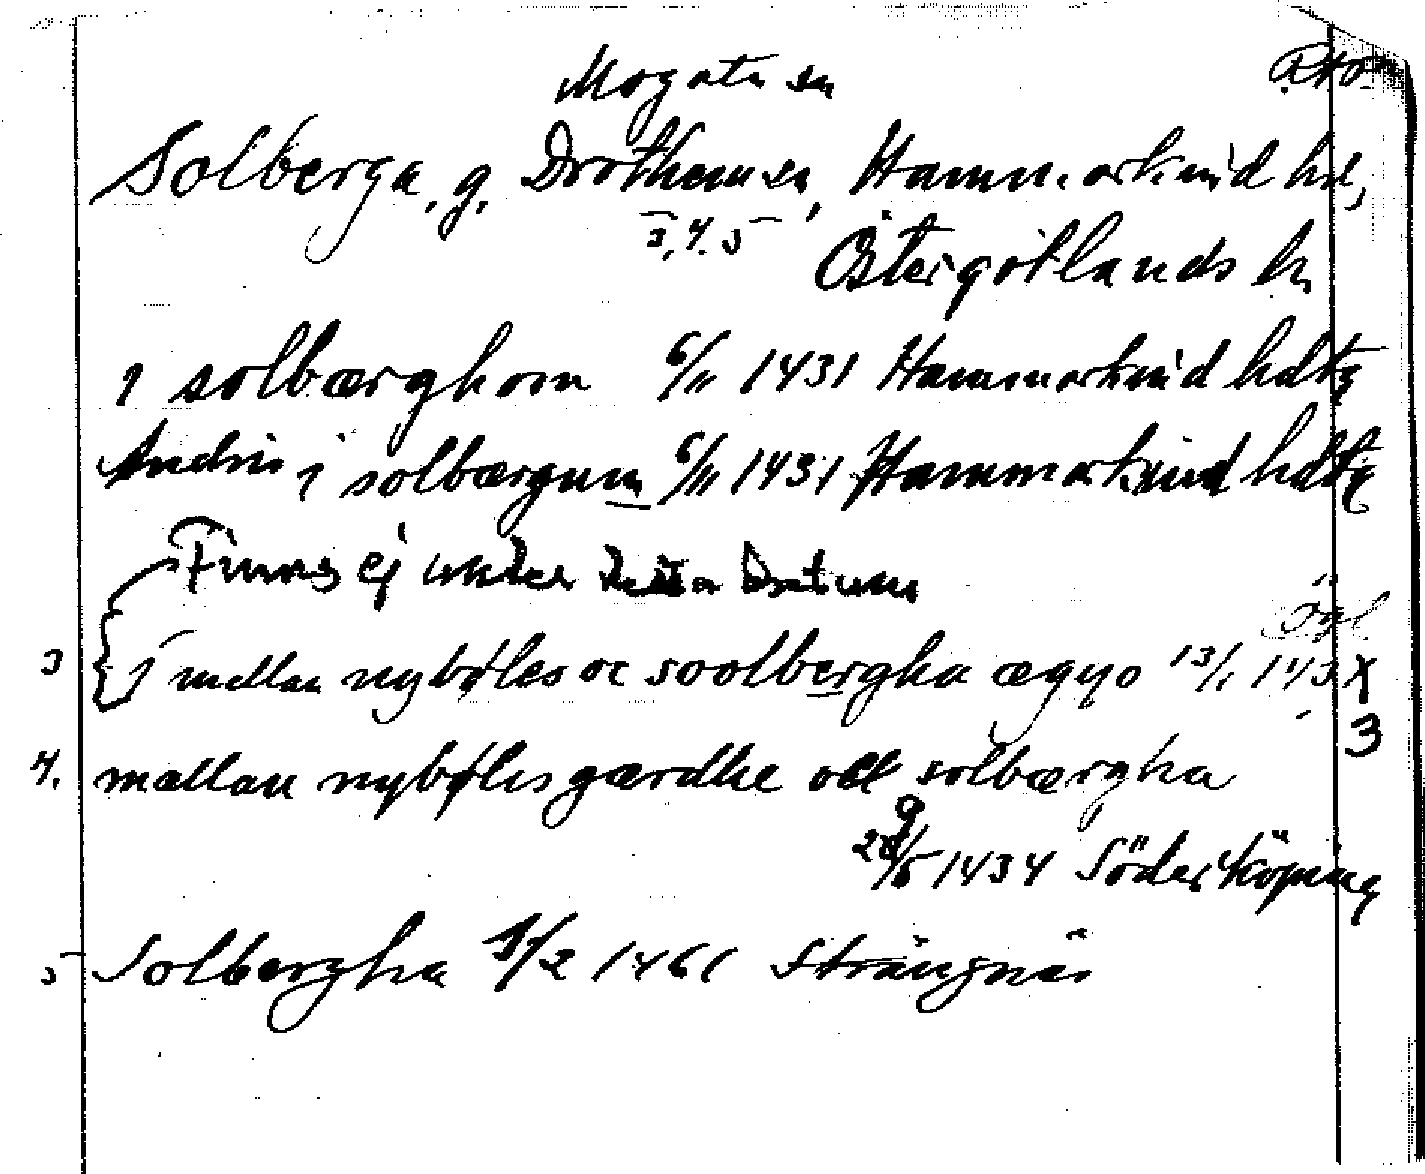 Mogata sn
Solberga, g. Drothem sn, Hammarkind hd,
3, 4, 5
Östergötlands l.
i solbærghom 6/11 1431 Hammarkind hdtg
Andris i solbærgum 6/11 1431 Hammarkind hdtg
Finns ej under detta datum
Ögl
3 i mællan nybøles oc soolbergha ægyo 13/1 143X
3
4. mællan nybølis gærdhe ok solbærgha
29/5 1434 Söderköping
5 Solbergha 1/2 1461 Strängnäs